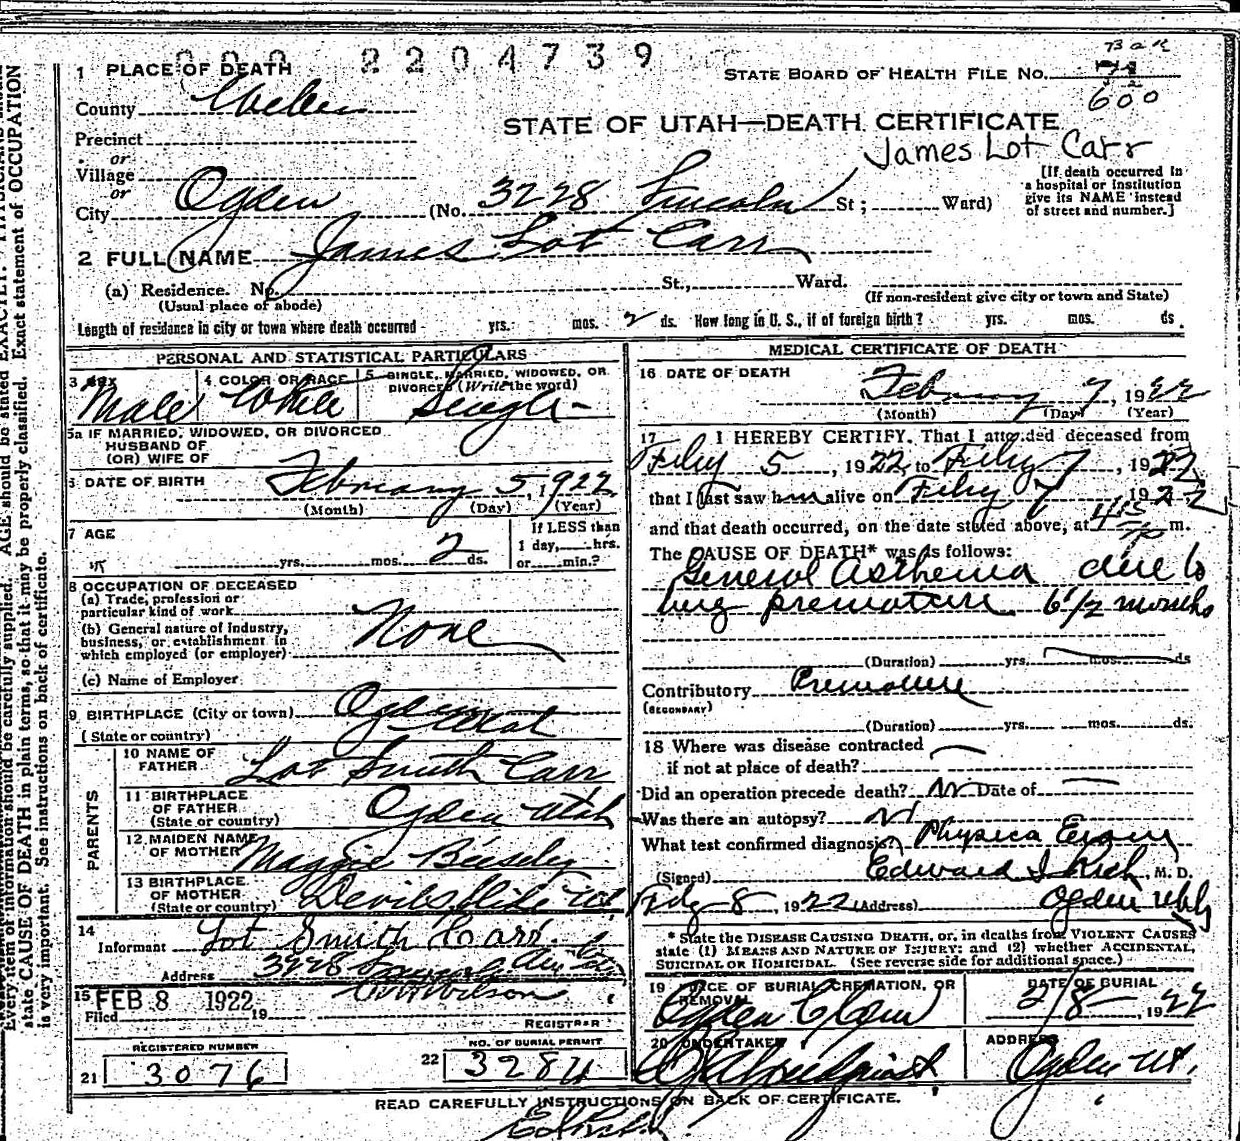 000 2204739
1 PLACE OF DEATH
STATE BOARD OF HEALTH FILE NO.
600
County Weber
STATE OF UTAH—DEATH CERTIFICATE
James Lot Carr
Precinct
or
Village
or
City Ogden (No. 3228 Lincoln St; Ward)
[If death occurred in a hospital or institution give its NAME instead of street and number.]
2 FULL NAME James Lot Carr
(a) Residence. No. St., Ward.
(Usual place of abode) (If non-resident give city or town and State)
Length of residence in city or town where death occurred - yrs. mos. 2 ds. How long in U. S., if of foreign birth? yrs. mos. ds.
PERSONAL AND STATISTICAL PARTICULARS
3 SEX Male
4 COLOR OR RACE White
5 SINGLE, MARRIED, WIDOWED, OR DIVORCED (Write the word) Single
5a IF MARRIED, WIDOWED, OR DIVORCED
HUSBAND OF
(OR) WIFE OF
DATE OF BIRTH February 5, 1922
(Month) (Day) (Year)
7 AGE
yrs. mos. 2 ds.
If LESS than
1 day, hrs.
or min.?
8 OCCUPATION OF DECEASED
(a) Trade, profession or
particular kind of work
(b) General nature of industry,
business, or establishment in
which employed (or employer)
None
(c) Name of Employer
9 BIRTHPLACE (City or town) Ogden
(State or country) Utah
PARENTS
10 NAME OF
FATHER Lot Smith Carr
11 BIRTHPLACE
OF FATHER
(State or country) Ogden Utah
12 MAIDEN NAME
OF MOTHER Maggie Beesley
13 BIRTHPLACE
OF MOTHER
(State or country) Devils Slide Ut.
14
Informant Lot Smith Carr
Address 3228
15 FEB 8 1922
Filed 19 Wilson
REGISTRAR
REGISTERED NUMBER
21 3076
NO. OF BURIAL PERMIT
22 3284
MEDICAL CERTIFICATE OF DEATH
16 DATE OF DEATH
February 7, 1922
(Month) (Day) (Year)
17 I HEREBY CERTIFY, That I attended deceased from
Feby 5, 1922, to Feby 7, 1922,
that I last saw him alive on Feby 7 1922
and that death occurred, on the date stated above, at 415 p m.
The CAUSE OF DEATH* was as follows:
General Asthenia due to
being premature 6 1/2 months
(Duration) yrs. mos. ds
Contributory Premature
(SECONDARY)
(Duration) yrs. mos. ds.
18 Where was disease contracted
if not at place of death?
Did an operation precede death? No Date of
Was there an autopsy? No
What test confirmed diagnosis? Physical Exam
(Signed) Edward I Rich M. D.
Feby 8, 1922 (Address) Ogden Utah
* State the DISEASE CAUSING DEATH, or, in deaths from VIOLENT CAUSES
state (1) MEANS AND NATURE OF INJURY; and (2) whether ACCIDENTAL,
SUICIDAL OR HOMICIDAL. (See reverse side for additional space.)
19 PLACE OF BURIAL, CREMATION, OR
REMOVAL
Ogden
DATE OF BURIAL
2/8 1922
20 UNDERTAKER
ADDRESS
Ogden Ut.
READ CAREFULLY INSTRUCTIONS ON BACK OF CERTIFICATE.
Every item of information should be carefully supplied. AGE should be stated EXACTLY. PHYSICIANS should
state CAUSE OF DEATH in plain terms, so that it may be properly classified. Exact statement of OCCUPATION
is very important. See instructions on back of certificate.